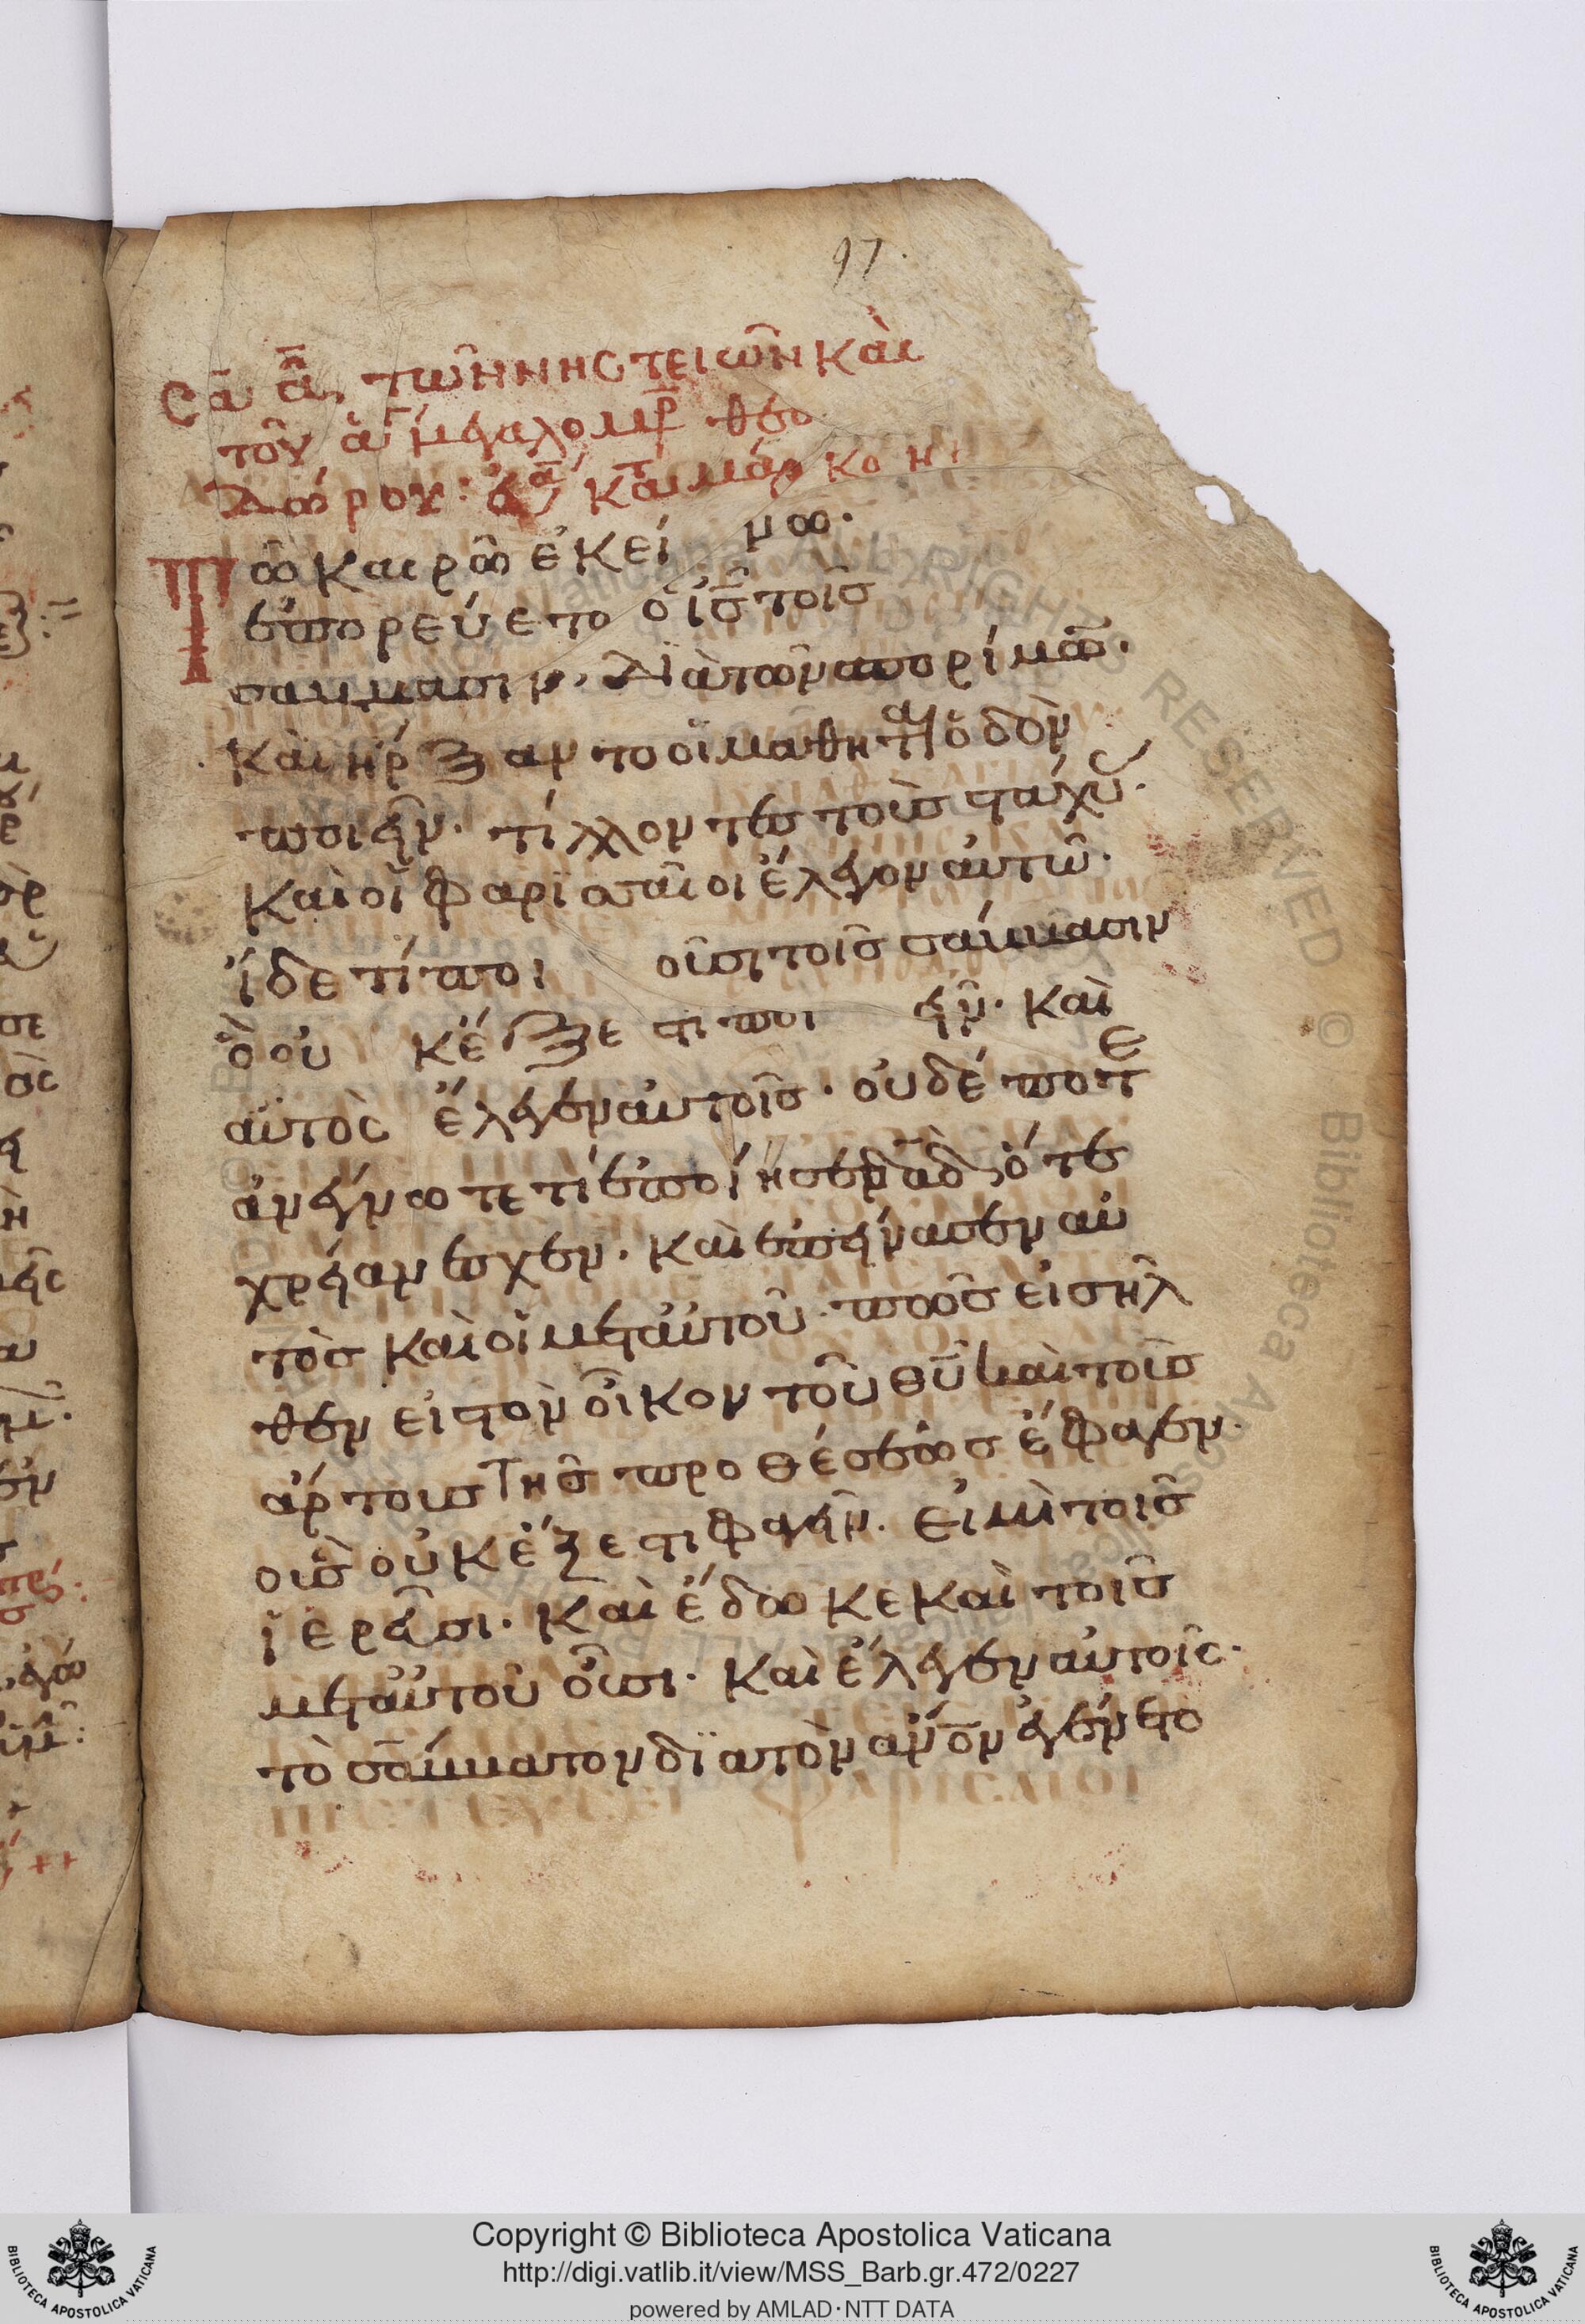 97.
Σα̅ α̅. τῶν νηστειῶν καὶ
τοῦ ἁγ μεγαλομρ θεο
δώρου: ἐυα κατ μάρκον
Τῶ καιρῶ ἐκείνω.
ἐπορεύετο ὁ ις τοῖς
σάββασιν. διὰ τῶν σπορίμω.
καὶ ἤρξαντο οἱ μαθητ α ὁδὸν
ποιεῖν. τίλλοντες τοὺς στάχυ.
καὶ οἱ φαρισαῖοι ἔλεγον αὐτῶ.
ἴδε τί ποιοῦσι τοῖς σάββασιν
ὃ οὐκ ἔξεστι ποιεῖν. καὶ
αὐτὸς ἔλεγεν αὐτοῖς. οὐδέποτε
ἀνέγνωτε τί ἐποίησεν δαδ, ὅτε
χρείαν ἔσχεν. καὶ ἐπείνασεν αὐ
τὸς καὶ οἱ μετ αὐτοῦ. πῶς εἰσῆλ
θεν εἰς τὸν οἶκον τοῦ θυ καὶ τοὺς
ἄρτους τῆς προθέσεως ἔφαγεν.
οὓς οὐκ ἔξεστι φαγεῖν. εἰ μὴ τοῖς
ἱερεῦσι. καὶ ἔδωκε καὶ τοῖς
μετ αὐτοῦ οὖσι. καὶ ἔλεγεν αὐτοῖς.
τὸ σάββατον διὰ τὸν ανον ἐγένετο
Copyright © Biblioteca Apostolica Vaticana
http://digi.vatlib.it/view/MSS_Barb.gr.472/0227
powered by AMLAD·NTT DATA
BIBLIOTECA APOSTOLICA VATICANA
BIBLIOTECA APOSTOLICA VATICANA